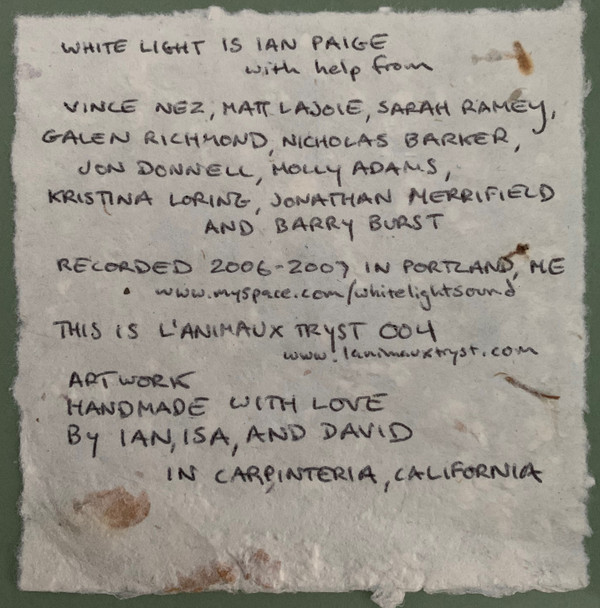 WHITE LIGHT IS IAN PAIGE
with help from
VINCE NEZ, MATT LAJOIE, SARAH RAMEY,
GALEN RICHMOND, NICHOLAS BARKER,
JON DONNELL, MOLLY ADAMS,
KRISTINA LORING, JONATHAN MERRIFIELD
AND BARRY BURST
RECORDED 2006-2007 IN PORTLAND, ME
www.myspace.com/whitelightsound
THIS IS L'ANIMAUX TRYST 004
www.lanimauxtryst.com
ARTWORK
HANDMADE WITH LOVE
BY IAN, ISA, AND DAVID
IN CARPINTERIA, CALIFORNIA